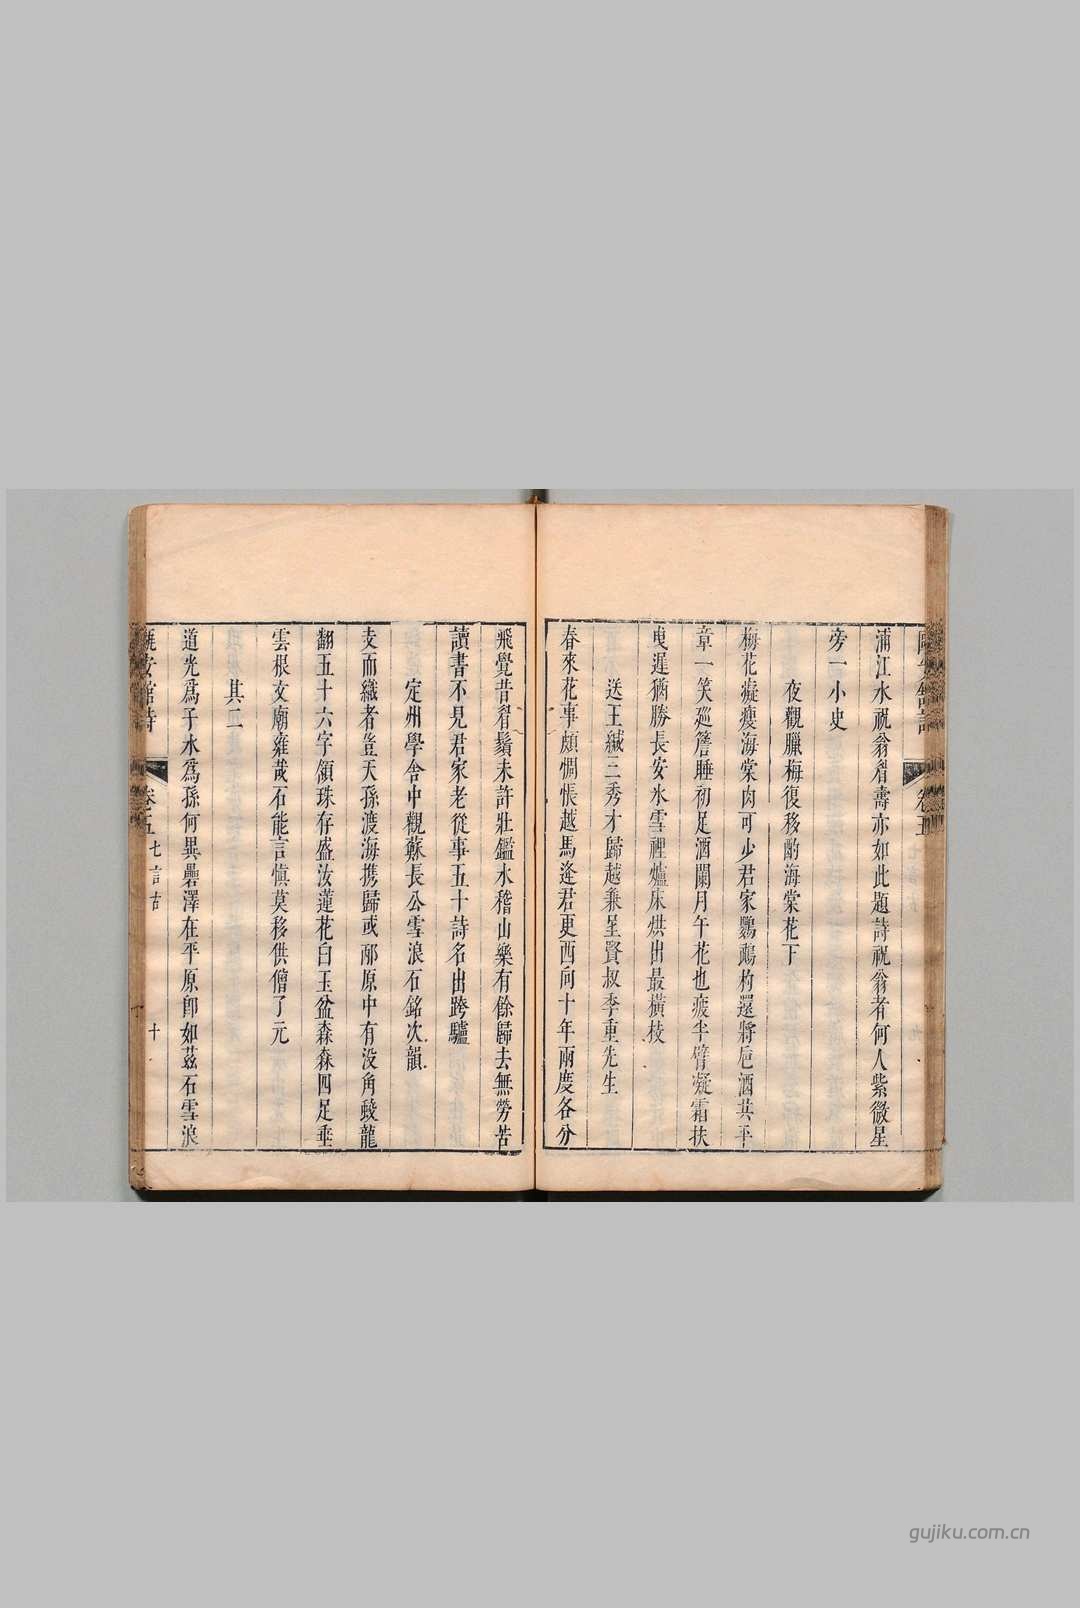 浦江水祝翁眉壽亦如此題詩祝翁者何人紫微星
旁一小史
夜觀臘梅復移酌海棠花下
梅花癡瘦海棠肉可少君家鸚鵡杓還將巵酒共平
章一笑廵簷睡初足酒闌月午花也疲半臂凝霜扶
曳遲猶勝長安氷雪裡爐床烘出最橫枝
送王緘三秀才歸越兼呈賢叔季重先生
春來花事頗惆悵越馬逢君更西向十年兩慶各分
飛覺昔眉鬚未許壯鑑水稽山樂有餘歸去無勞苦
讀書不見君家老從事五十詩名出跨驢
定州學舍中觀蘇長公雪浪石銘次韻
支而織者豈天孫渡海携歸或邴原中有没角殿龍
翻五十六字領珠存盛汝蓮花白玉盆森森四足垂
雲根文廟雍哉石能言慎莫移供僧了元
其二
道光爲子水爲孫何異罍澤在平原卽如茲石雪浪
安館詩
卷五
七言古
十
gujiku.com.cn